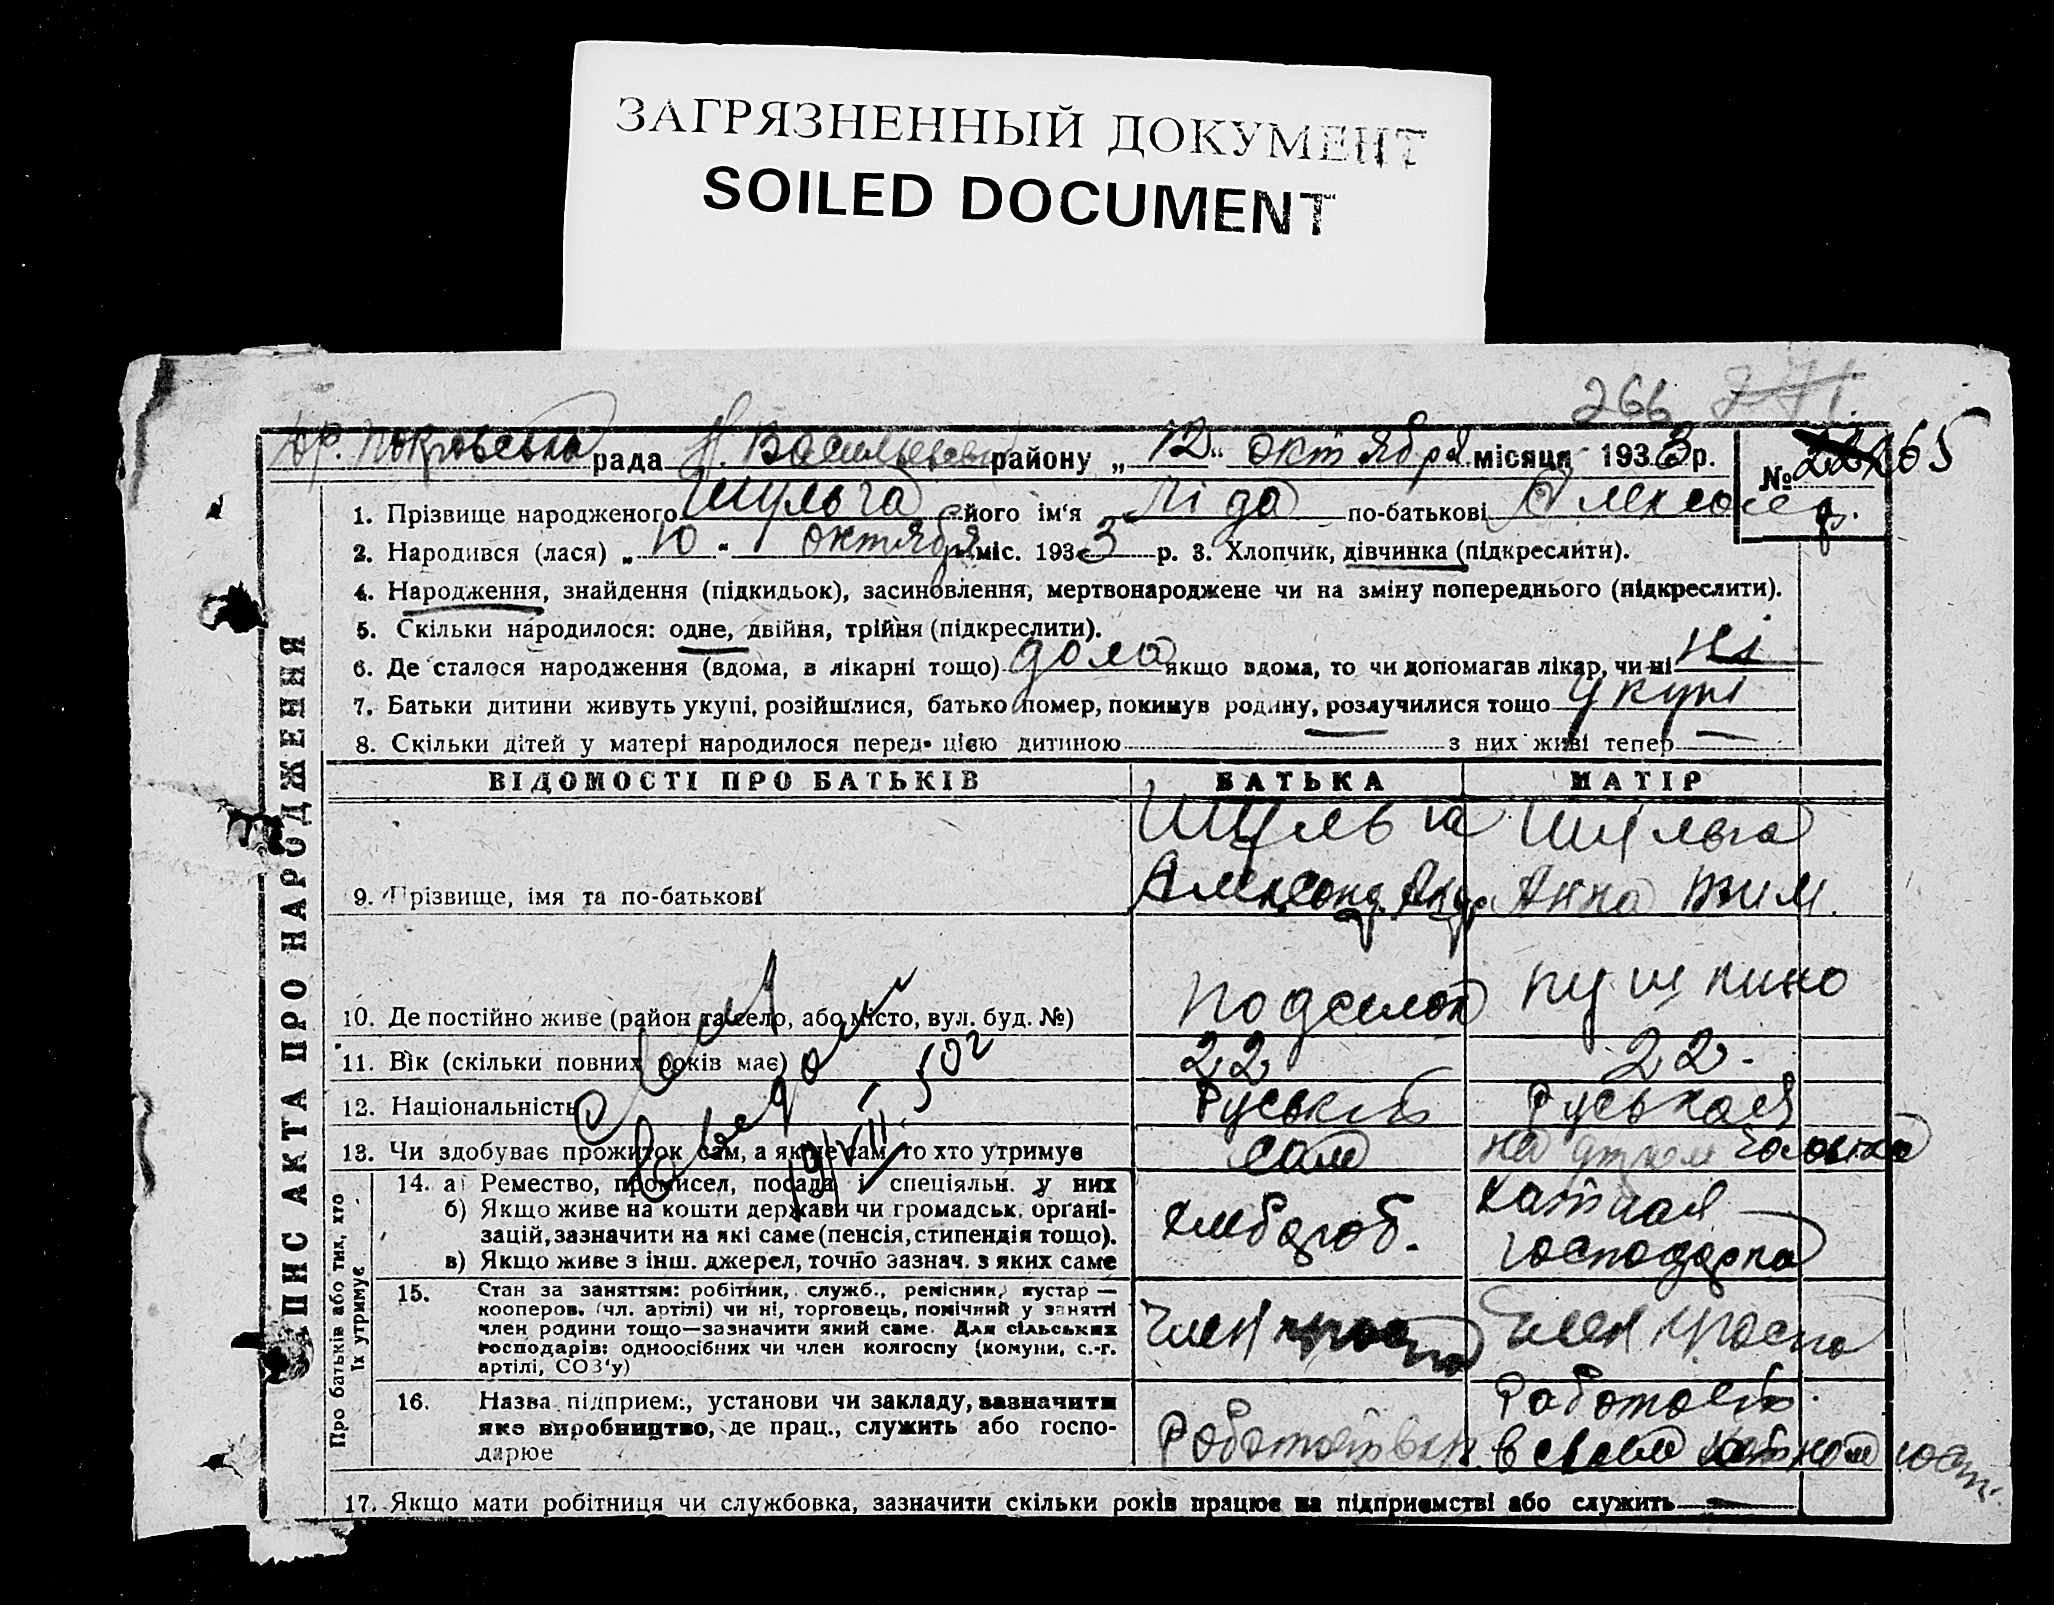 ЗАГРЯЗНЕННЫЙ ДОКУМЕНТ
SOILED DOCUMENT
266
рада районну „12“ октября місяця 1933 р.
№ 265
1. Прізвище народженого Шульга його ім'я Ліда по-батькові
2. Народився (лася) „10“ октября міс. 1933 р. 3. Хлопчик, дівчинка (підкреслити).
4. Народження, знайдення (підкидьок), засиновлення, мертвонароджене чи на зміну попереднього (підкреслити).
5. Скільки народилося: одне, двійня, трійня (підкреслити).
6. Де сталося народження (вдома, в лікарні тощо) дома якщо вдома, то чи допомагав лікар, чи ні ні
7. Батьки дитини живуть укупі, розійшлися, батько помер, покинув родину, розлучилися тощо укупі
8. Скільки дітей у матері народилося перед цією дитиною з них живі тепер —
ЗАПИС АКТА ПРО НАРОДЖЕННЯ
ВІДОМОСТІ ПРО БАТЬКІВ БАТЬКА МАТІР
Шульга Шульга
9. Прізвище, імя та по-батькові Анна
10. Де постійно живе (район та село, або місто, вул. буд. №)
11. Вік (скільки повних років має) 22 22
12. Національність Руський Руськая
13. Чи здобуває прожиток сам, а як не сам, то хто утримує сам
Про батьків або тих, хто їх утримує
14. а) Ремество, промисел, посада і спеціяльн. у них
б) Якщо живе на кошти держави чи громадськ. органі-
зацій, зазначити на які саме (пенсія, стипендія тощо).
в) Якщо живе з інш. джерел, точно зазнач. з яких саме
хлебороб. хатная
15. Стан за заняттям: робітник, служб., ремісник, кустар —
кооперов. (чл. артілі) чи ні, торговець, помічний у занятті
член родини тощо—зазначити який саме. Для сільських
господарів: одноосібник чи член колгоспу (комуни, с.-г.
артілі, СОЗ'у)
Член Член
16. Назва підприєм., установи чи закладу, зазначити
яке виробництво, де прац., служить або госпо-
дарює
17. Якщо мати робітниця чи службовка, зазначити скільки років працює на підприємстві або служить —